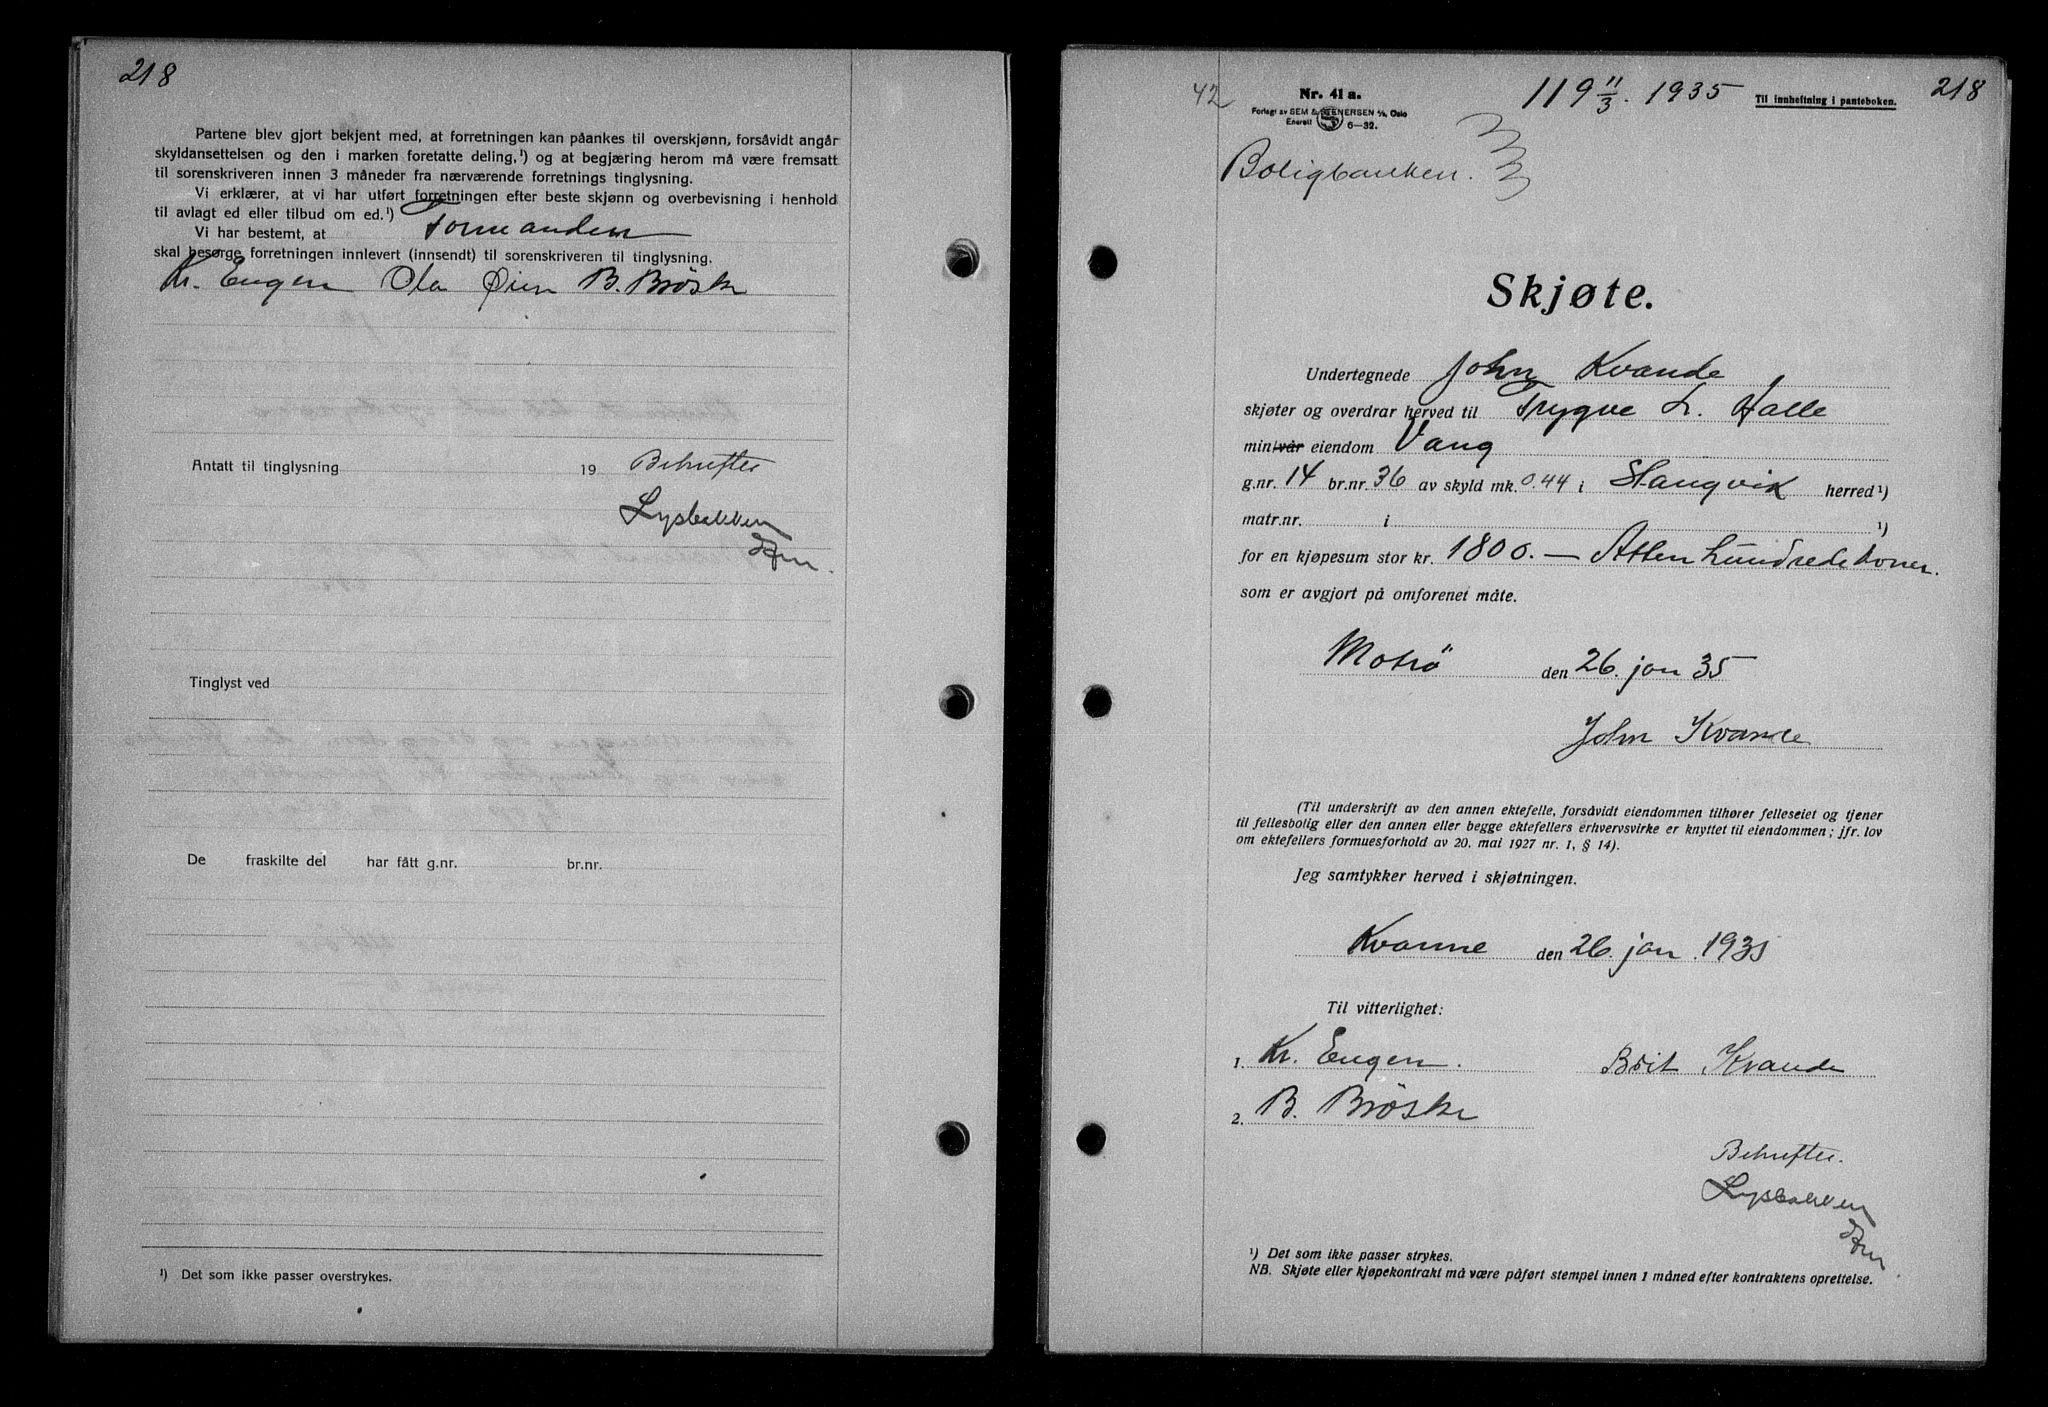 218
Partene blev gjort bekjent med, at forretningen kan påankes til overskjønn, forsåvidt angår
skyldansettelsen og den i marken foretatte deling,¹) og at begjæring herom må være fremsatt
til sorenskriveren innen 3 måneder fra nærværende forretnings tinglysning.
Vi erklærer, at vi har utført forretningen efter beste skjønn og overbevisning i henhold
til avlagt ed eller tilbud om ed.¹)
Vi har bestemt, at Formanden
skal besørge forretningen innlevert (innsendt) til sorenskriveren til tinglysning.
Kr. Engen Ola Øien B. Brøske
Antatt til tinglysning 19
Bekreftes
Lysbakken
Tinglyst ved
De fraskilte del har fått g.nr. br.nr.
¹) Det som ikke passer overstrykes.
42
Nr. 41 a.
Forlagt av SEM & STENERSEN A/S, Oslo
Enerett 6–32.
119 11/3. 1935
Til innheftning i panteboken.
218
Boligbanken.
Skjøte.
Undertegnede John Kvande
skjøter og overdrar herved til Trygve L. Halle
min/vår eiendom Vang
g.nr. 14 br.nr. 36 av skyld mk. 0.44 i Stangvik herred¹)
matr.nr. i ¹)
for en kjøpesum stor kr. 1800. — Atten hundrede kroner.
som er avgjort på omforenet måte.
Motrø den 26. jan 35
John Kvande
(Til underskrift av den annen ektefelle, forsåvidt eiendommen tilhører felleseiet og tjener
til fellesbolig eller den annen eller begge ektefellers erhvervsvirke er knyttet til eiendommen; jfr. lov
om ektefellers formuesforhold av 20. mai 1927 nr. 1, § 14).
Jeg samtykker herved i skjøtningen.
Kvanne den 26. jan. 1935
Til vitterlighet:
1. Kr. Engen.
Brit Kvande
2. B. Brøske
Bekreftes.
Lysbakken
¹) Det som ikke passer strykes.
NB. Skjøte eller kjøpekontrakt må være påført stempel innen 1 måned efter kontraktens oprettelse.